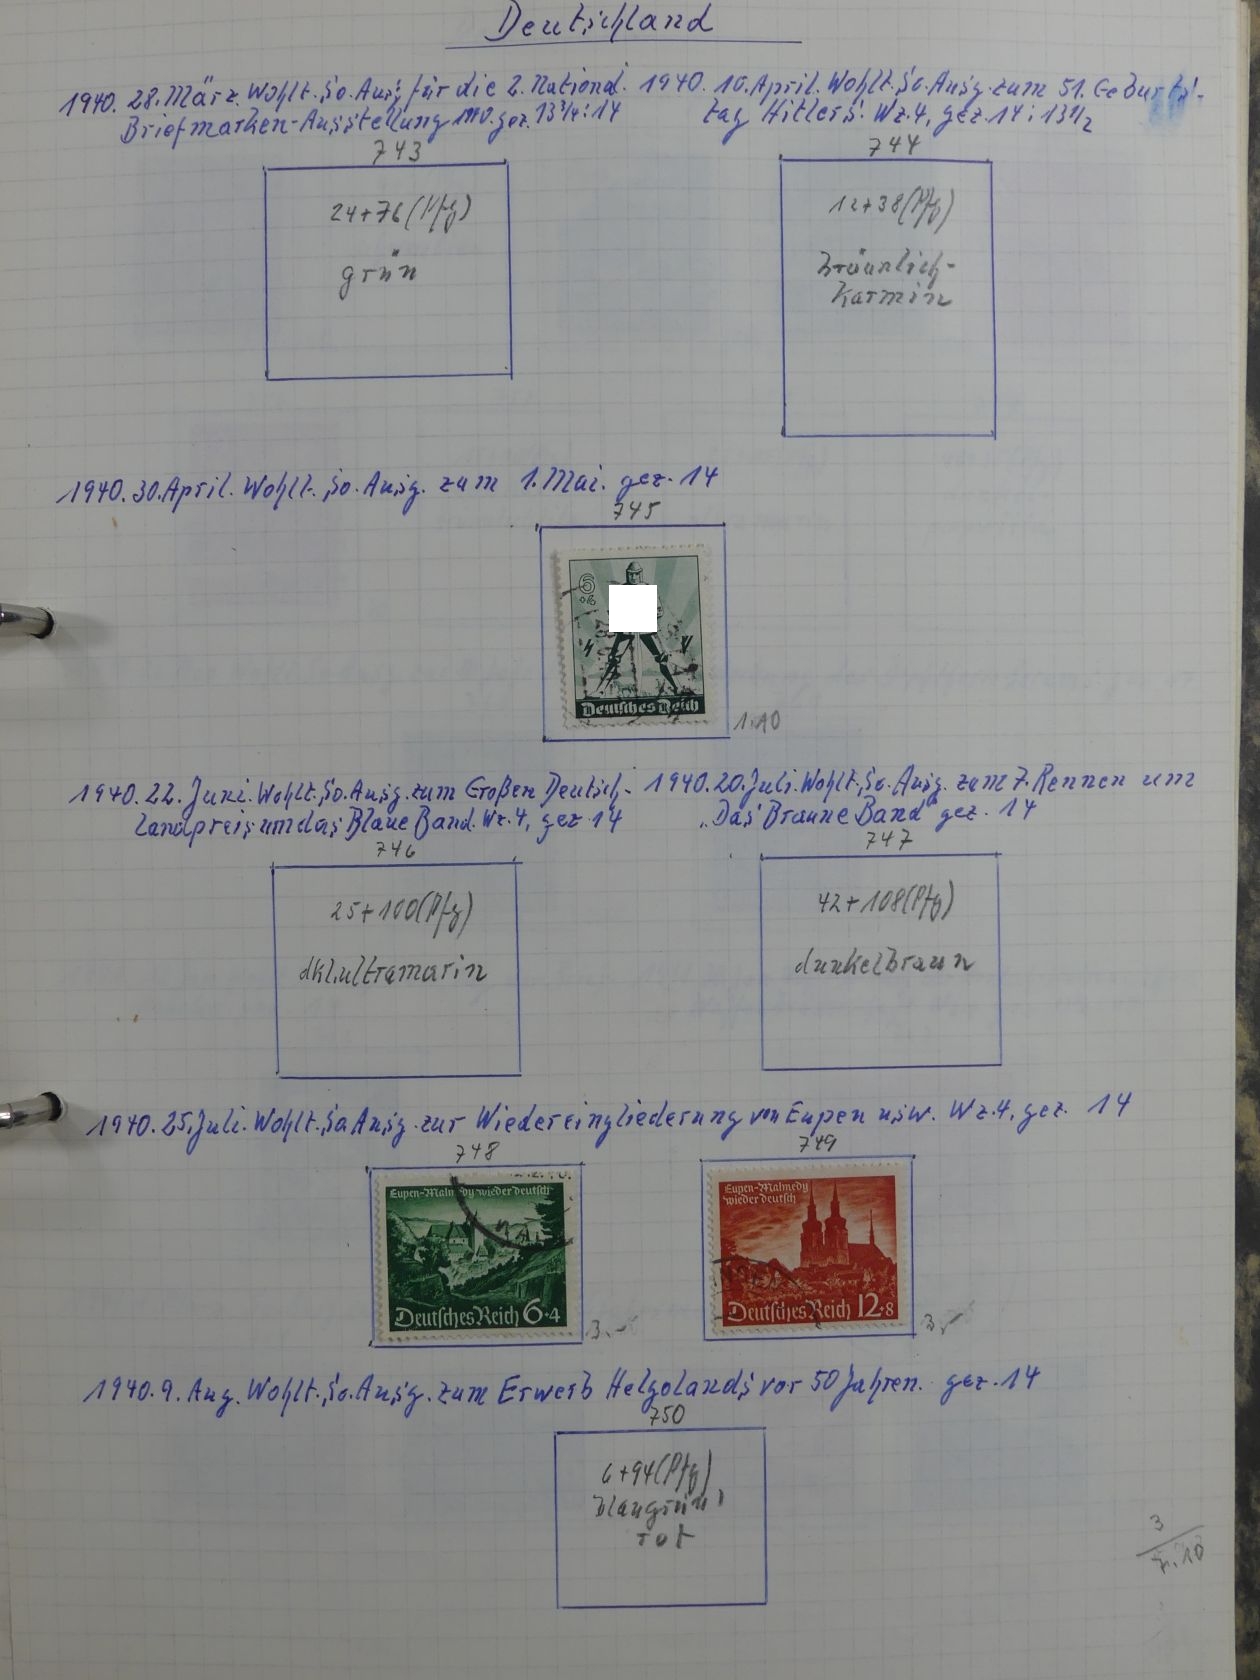 Deutschland
1940. 28. März. Wohlt. So. Ausg. für die 2. National.
Briefmarken-Ausstellung gez. 13¾:14
743
24+76 (Pfg)
grün
1940. 10. April. Wohlt. So. Ausg. zum 51. Geburts-
tag Hitlers. Wz. 4, gez. 14:13½
744
12+38 (Pfg)
bräunlich-
karmin
1940. 30. April. Wohlt. So. Ausg. zum 1. Mai. gez. 14
745
6
+4
Deutsches Reich
1.10
1940. 22. Juni. Wohlt. So. Ausg. zum Großen Deutsch-
landpreis um das Blaue Band. Wz. 4, gez 14
746
25+100 (Pfg)
dkl.ultramarin
1940. 20. Juli. Wohlt. So. Ausg. zum 7. Rennen um
„Das Braune Band" gez. 14
747
42+108 (Pfg)
dunkelbraun
1940. 25. Juli. Wohlt. So. Ausg. zur Wiedereingliederung von Eupen usw. Wz. 4, gez. 14
748
Eupen-Malmedy wieder deutsch
Deutsches Reich 6+4
3.-
749
Eupen-Malmedy
wieder deutsch
Deutsches Reich 12+8
3.-
1940. 9. Aug. Wohlt. So. Ausg. zum Erwerb Helgolands vor 50 Jahren. gez. 14
750
6+94 (Pfg)
blaugrün,
rot
3
7.10